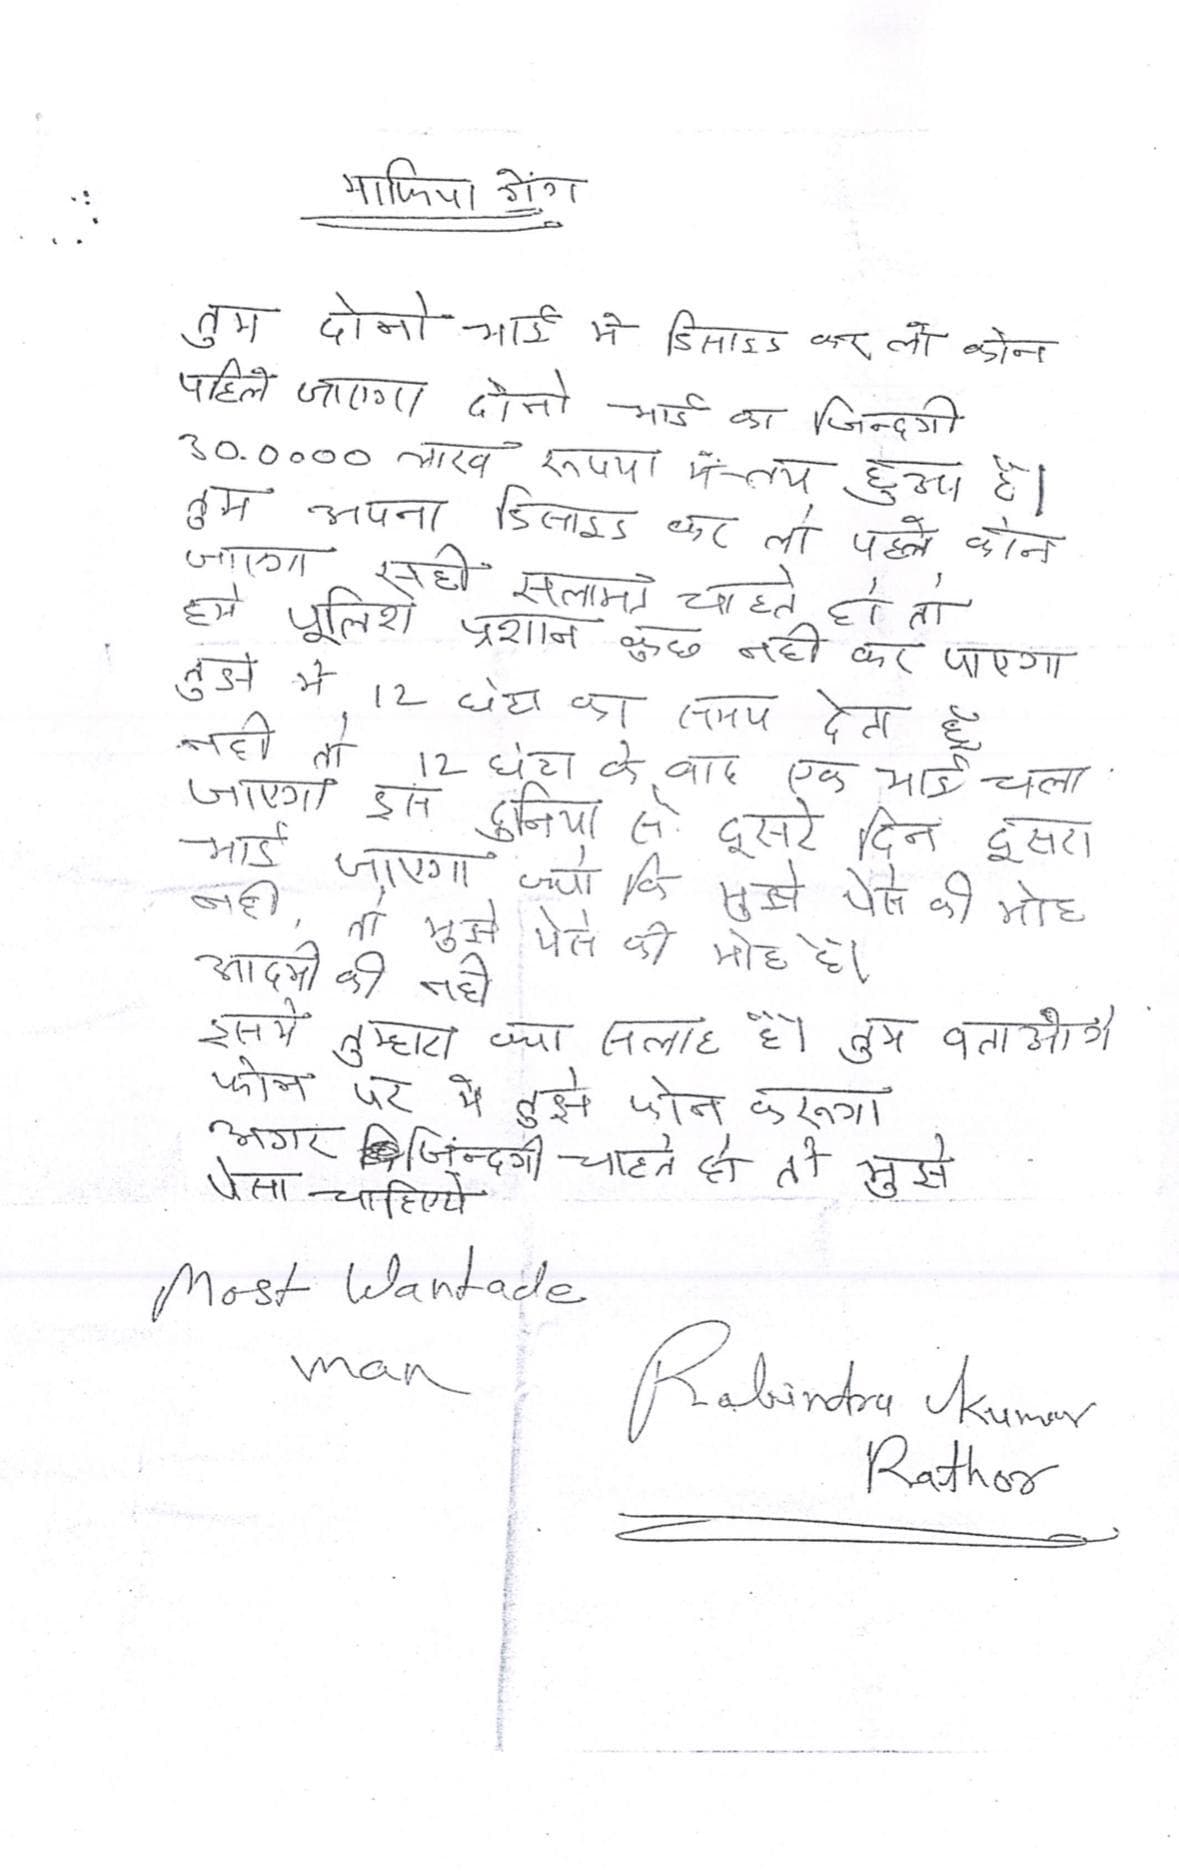 माफिया गेंग
तुम दोनो भाई मे डिसाइड कर लो कोन
पहिले जाएगा दोनो भाई का जिन्दगी
30.0000 लाख रूपया में तय हुआ है।
तुम अपना डिसाइड कर लो पहले कोन
जाएगा सही सलामत चाहते हो तो
हमे पूलिश प्रशान कुछ नही कर पाएगा
तुझे मै 12 घंटा का समय देता हूँ
नही तो 12 घंटा के बाद एक भाई चला
जाएगा इस दुनिया से दूसरे दिन दूसरा
भाई जाएगा क्यो कि मुझे पेसे की मोह
नही, तो मुझे पेसे की मोह है।
आदमी की नही
इसमे तुम्हारा क्या सलाह है। तुम बताओगे
फोन पर मै तुझे फोन करूगा
अगर जिंन्दगी चाहते हो तो मुझे
पेसा चाहिएये
Most Wantade
man
Rabindra Kumar
Rathor